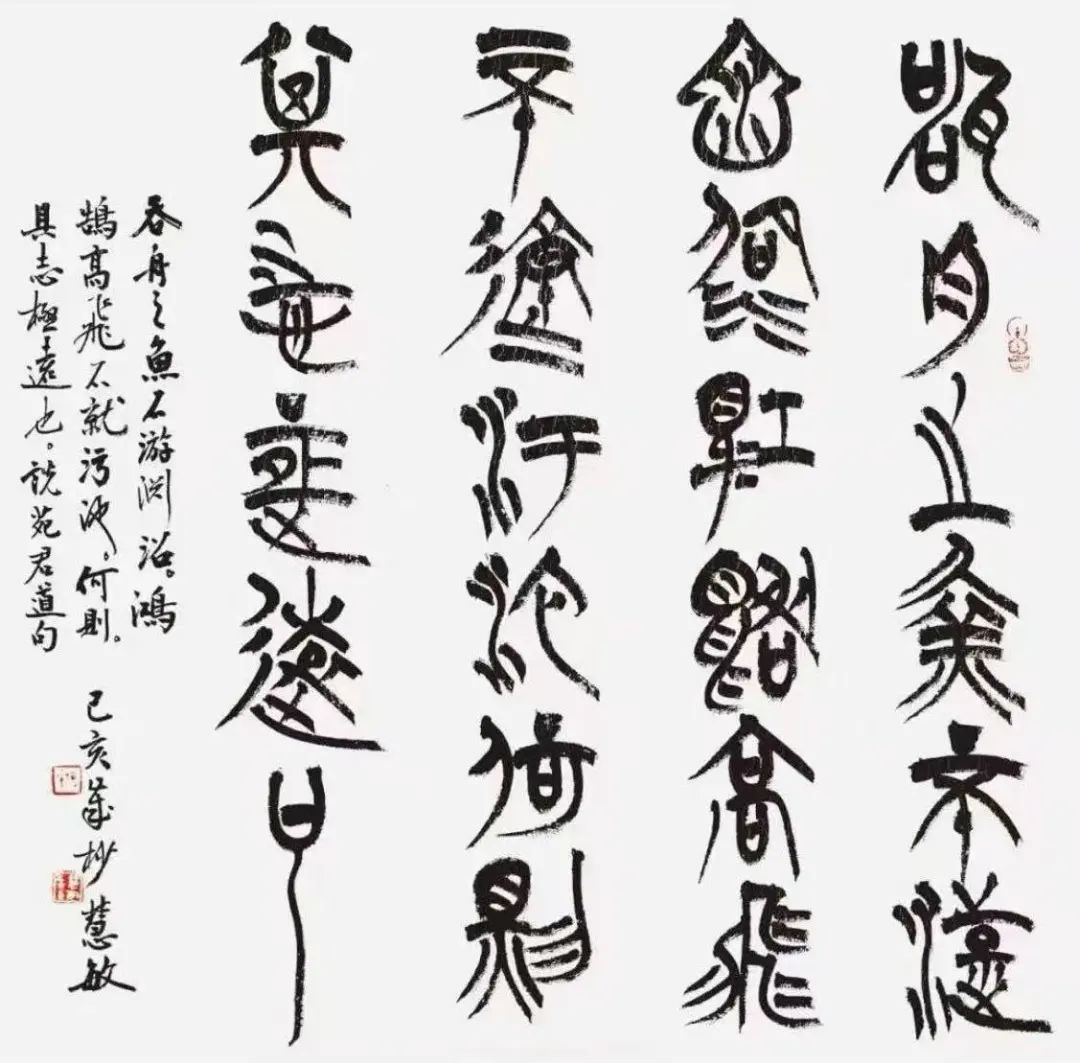 吞舟之魚不游
淵沼鴻鵠高飛
不就汙池何則
其志極遠也
吞舟之魚不游渕沼。鴻
鵠高飛不就污池。何則。
其志極遠也。説苑君道句
己亥歲杪慧敏